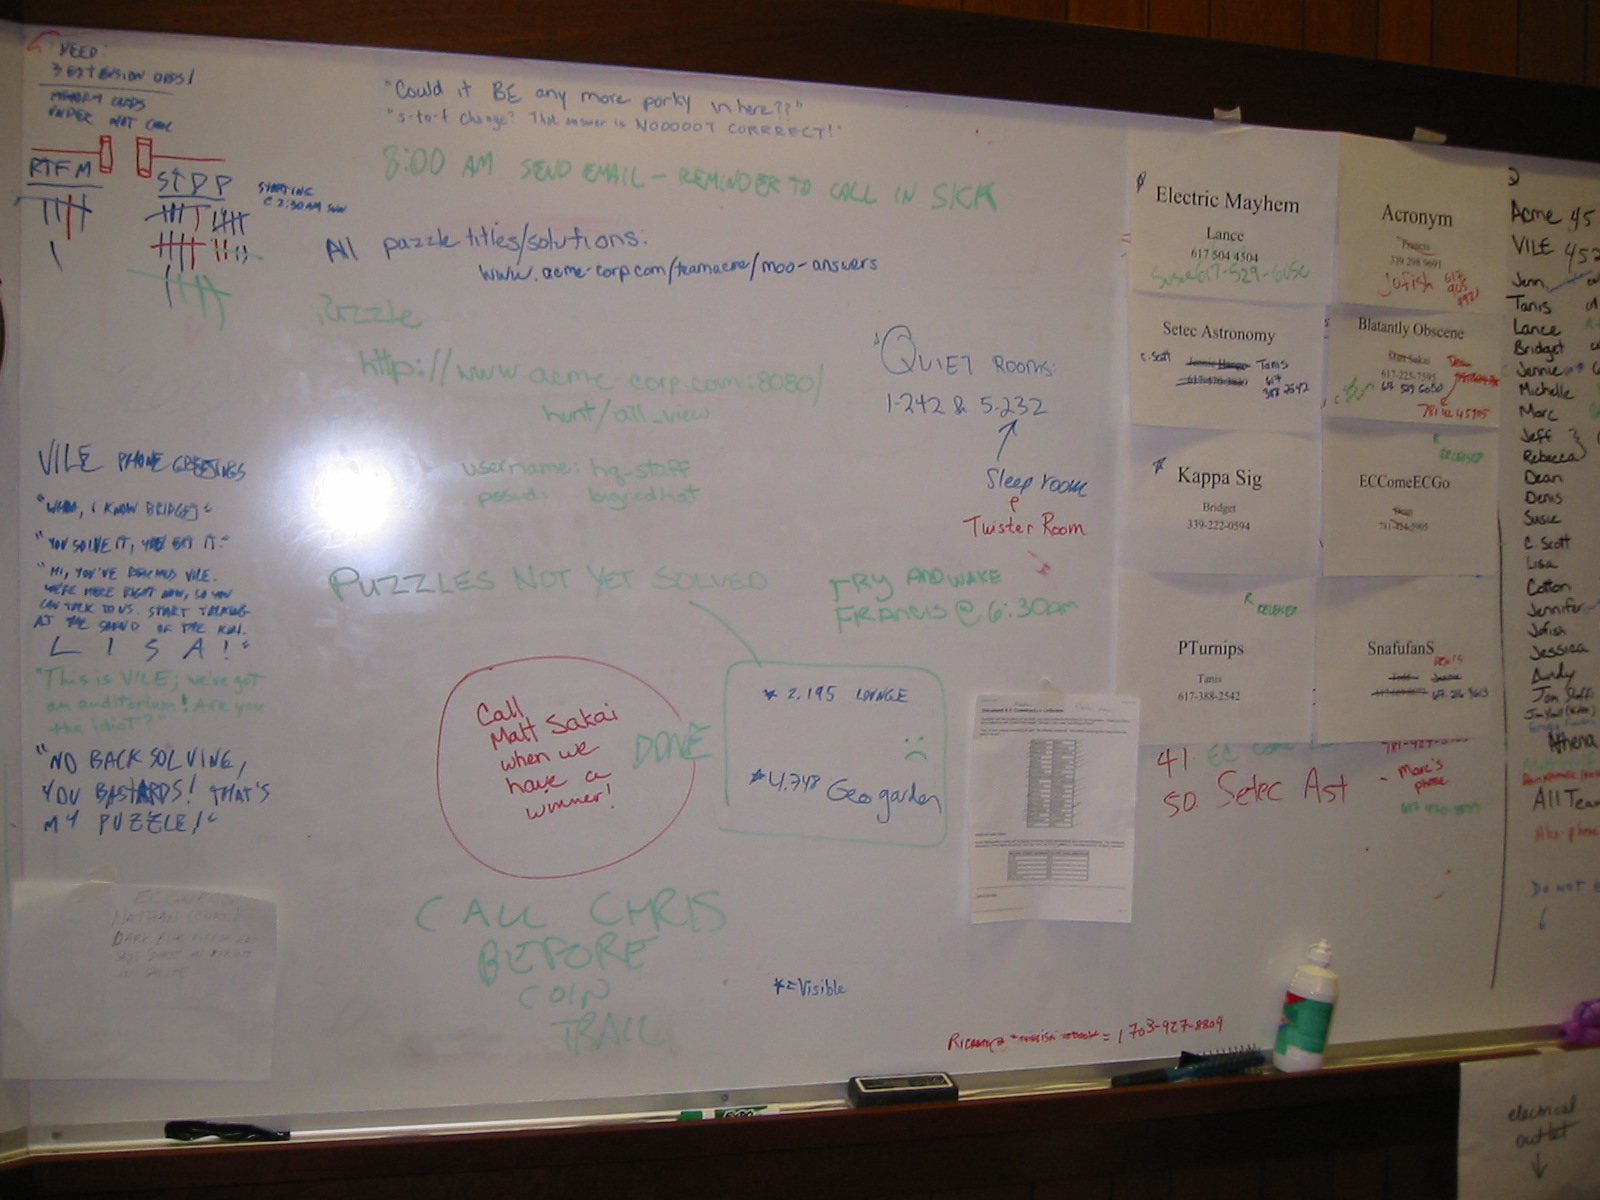 NEED:
3 EXTENSION CORDS!
RTFM
STDP
STARTING
@ 2:30AM SUN
"Could it BE any more porky in here??"
"s-to-f change? That answer is NOOOOOT CORRRRECT!"
8:00 AM SEND EMAIL - REMINDER TO CALL IN SICK
All puzzle titles/solutions:
www.acme-corp.com/teamacme/moo-answers
Puzzle
http://www.acme-corp.com:8080/
hunt/all_view
username: hq-staff
QUIET ROOMS:
1-242 & 5-232
Sleep room
Twister Room
VILE PHONE GREETINGS
"YOU SOLVE IT, YOU EAT IT."
"HI, YOU'VE REACHED VILE.
WE'RE HERE RIGHT NOW, SO YOU
CAN TALK TO US. START TALKING
AT THE SOUND OF THE
L I S A !"
"This is VILE; we've got
an auditorium! Are you
the idiot?"
"NO BACKSOLVING,
YOU BASTARDS! THAT'S
MY PUZZLE!"
PUZZLES NOT YET SOLVED
TRY AND WAKE
FRANCIS @ 6:30am
Call
Matt Sakai
when we
have a
winner!
DONE
* 2.195 LOUNGE
* 4.748 Geo garden
CALL CHRIS
BEFORE
COIN
TRALL
*=Visible
= 1 703-927-8809
Electric Mayhem
Lance
617 504 4504
Susie 617-529-6050
Acronym
Francis
339 298 9691
Jofish
Setec Astronomy
C. Scott
Tanis
617
388 2542
Blatantly Obscene
Matt Sakai
617-225-7595
617 529 6050
Kappa Sig
Bridget
339-222-0594
RELEASED
ECComeECGo
RELEASED
PTurnips
Tanis
617-388-2542
SnafufanS
DENIS
41
50 Setec Ast
- Marc's
phone
Acme 45
VILE 452
Jenn
Tanis
Lance
Bridget
Jennie
Michelle
Marc
Jeff
Rebecca
Dean
Denis
Susie
C. Scott
Lisa
Cotton
Jennifer
Jofish
Jessica
Andy
Athena
All Team
DO NOT
EXPO
electrical
outlet